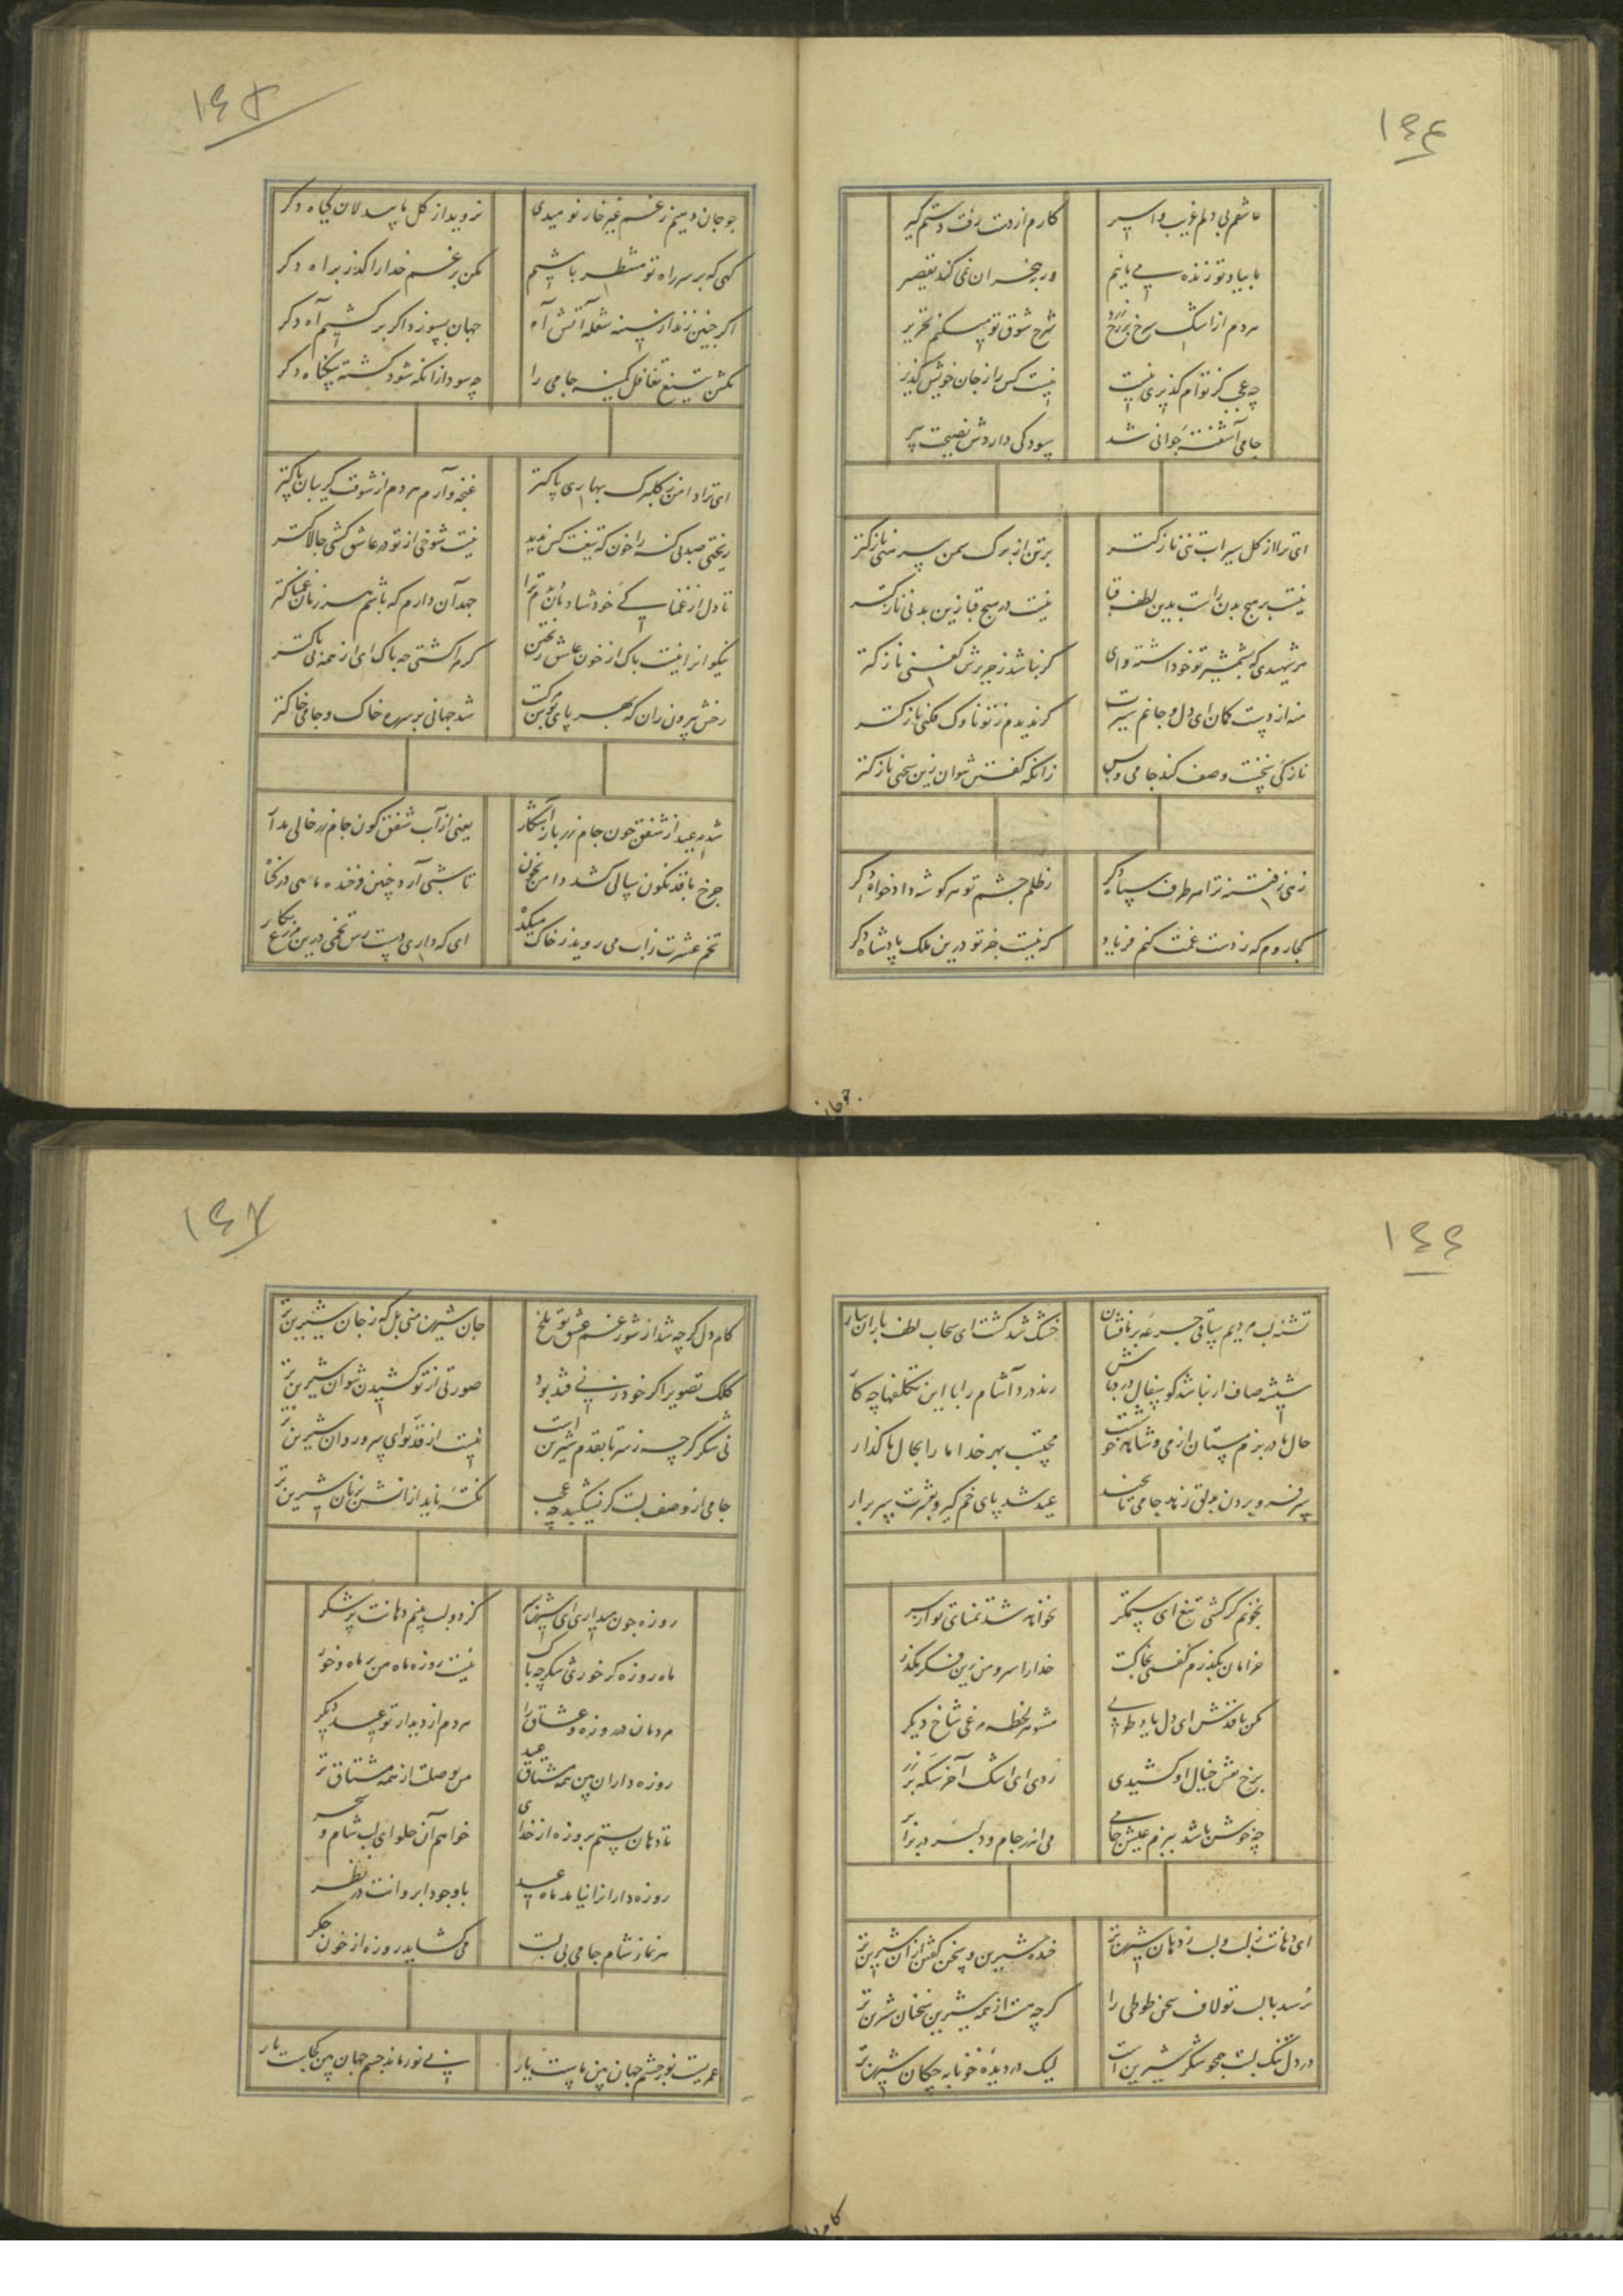 ۱۴۴
عاشقم بی دلم غریب و اسیر کارم از دست رفت دستم گیر
ما بیاد تو زنده می مانیم ور چه هجران نمی کند تقصیر
مردم از اشک سرخ بر رخ زرد شرح شوق تو میکنم تحریر
چه عجب کز توام گذیری نیست نیست کس را ز جان خویش گذیر
جامی آشفته جوانی شد سود کی داردش نصیحت پیر
ای ترا از گل سیراب تنی نازکتر بر تن از برک سمن پیرهنی نازکتر
نیست بر هیچ بدن راست بدین لطف قبا نیست در هیچ قبا زین بدنی نازکتر
هر شهیدی که بشمشیر تو خود داشته وای کر نباشد ز حریرش کفنی نازکتر
منه از دست کمان ای دل و جانم سپرت کر ندیدم ز تو ناوک فکنی نازکتر
نازکی سخنت وصف کند جامی و بس زانکه گفتن نتوان زین سخنی نازکتر
زهی ز فتنه ترا هر طرف سپاه دکر ز ظلم چشم تو هر کوشه دادخواه دکر
کجا روم که ز دست غمت کنم فریاد که نیست جز تو درین ملک پادشاه دکر
جو جان
۱۴۵
جو جان دهیم ز غم غیر خار نومیدی نروید از کل ما بیدلان کیاه دکر
کهی که بر سر راه تو منتظر باشیم مکن بر غم خدا را کذر براه دکر
اکر چنین زند از سینه شعله آتش آه جهان بسوزد اکر برکشیم آه دکر
مکش بتیغ تغافل کمینه جامی را چه سود ازانکه شود کشته بیکناه دکر
ای ترا دامن ز کلبرک بهاری پاکتر غنچه وارم هر دم از شوقت کریبان چاکتر
ریختی صد بی کنه را خون که تیغت کس ندید نیست شوخی از تو در عاشق کشی چالاکتر
تا دل از غمناکی خود شادمان دیدم ترا جهد آن دارم که باشم هر زمان غمناکتر
نیکوانرا نیست باک از خون عاشق ریختن کر مرا کشتی چه باک ای از همه بی باکتر
رخش بیرون ران که بهر پای بوس مرکبت شد جهانی بر سر ره خاک و جامی خاکتر
شد مه عید از شفق چون جام زر باز آشکار یعنی از آب شفق کون جام زر خالی مدار
چرخ با قد نکون سالی کشد دامن بخون تا شبی آرد چنین فرخنده ماهی در کنار
تخم عشرت ز آب می روید ز خاک میکده ای که داری دست رس تخمی درین مزرع بکار
۱۴۶
تشنه لب مردیم ساقی جرعه بر ما فشان خشک شد کشت ای سحاب لطف باران ببار
شیشه صاف ار نباشد کو سفال درد باش رند درد آشام را با این تکلفها چه کار
حال ما در بزم مستان از می و شاهد خوشست محتسب بهر خدا ما را بحال ما کذار
سر فرو بردن بدلق زهد جامی تا بچند عید شد پای خم کیر و بعشرت سر برار
بخونم کر کشی تیغ ای ستمکر نخواهد شد تمنای تو از سر
خرامان بکذرم کفتی بخاکت خدا را سرو من زین فکر بکذر
مکن با قدش ای دل یاد طوبی مشو هر لحظه مرغی شاخ دیکر
برخ نقش خیال او کشیدی زدی ای اشک آخر سکه بر زر
چه خوش باشد ببزم عیش جامی می اندر جام و دلبر در برابر
ای دهانت ز لب و لب ز دهان شیرین تر خنده شیرین و سخن کفتن از آن شیرین تر
نرسد با لب تو لاف سخن طوطی را کرچه هست از همه شیرین سخنان شیرین تر
در دل تنک لبت همچو شکر شیرین است لیک در دیده خونابه چکان شیرین تر
کام دل
۱۴۷
کام دل کرچه شد از شور غم عشق تو تلخ جان شیرین منی بل که ز جان شیرین تر
کلک تصویر اکر خود ز نی قند بود صورتی از تو کشیدن نتوان شیرین تر
نی شکر کرچه ز سر تا بقدم شیرین است نیست از قد تو ای سرو روان شیرین تر
جامی از وصف لبت کر نیشکر شد چه عجب نکته ناید ازانش بزبان شیرین تر
روزه چون میداری ای شیرین پسر کز دو لب بینم دهانت پر شکر
ماه روزه کر خوری شکر چه باک نیست روزه ماه من بر ماه و خور
مردمان در روزه و عشاق را هر دم از دیدار تو عید دکر
روزه داران بین همه مشتاق عید من بوصلت از همه مشتاق تر
تا دهان بستم بروزه از خدای خواهم آن حلوای لب شام و سحر
روزه دارانرا نیاید ماه عید با وجود ابروانت در نظر
هر نماز شام جامی بی لبت می کشاید روزه از خون جکر
عمریست نور چشم جهان بین ماست یار بی نور ماند چشم جهان بین کجاست یار